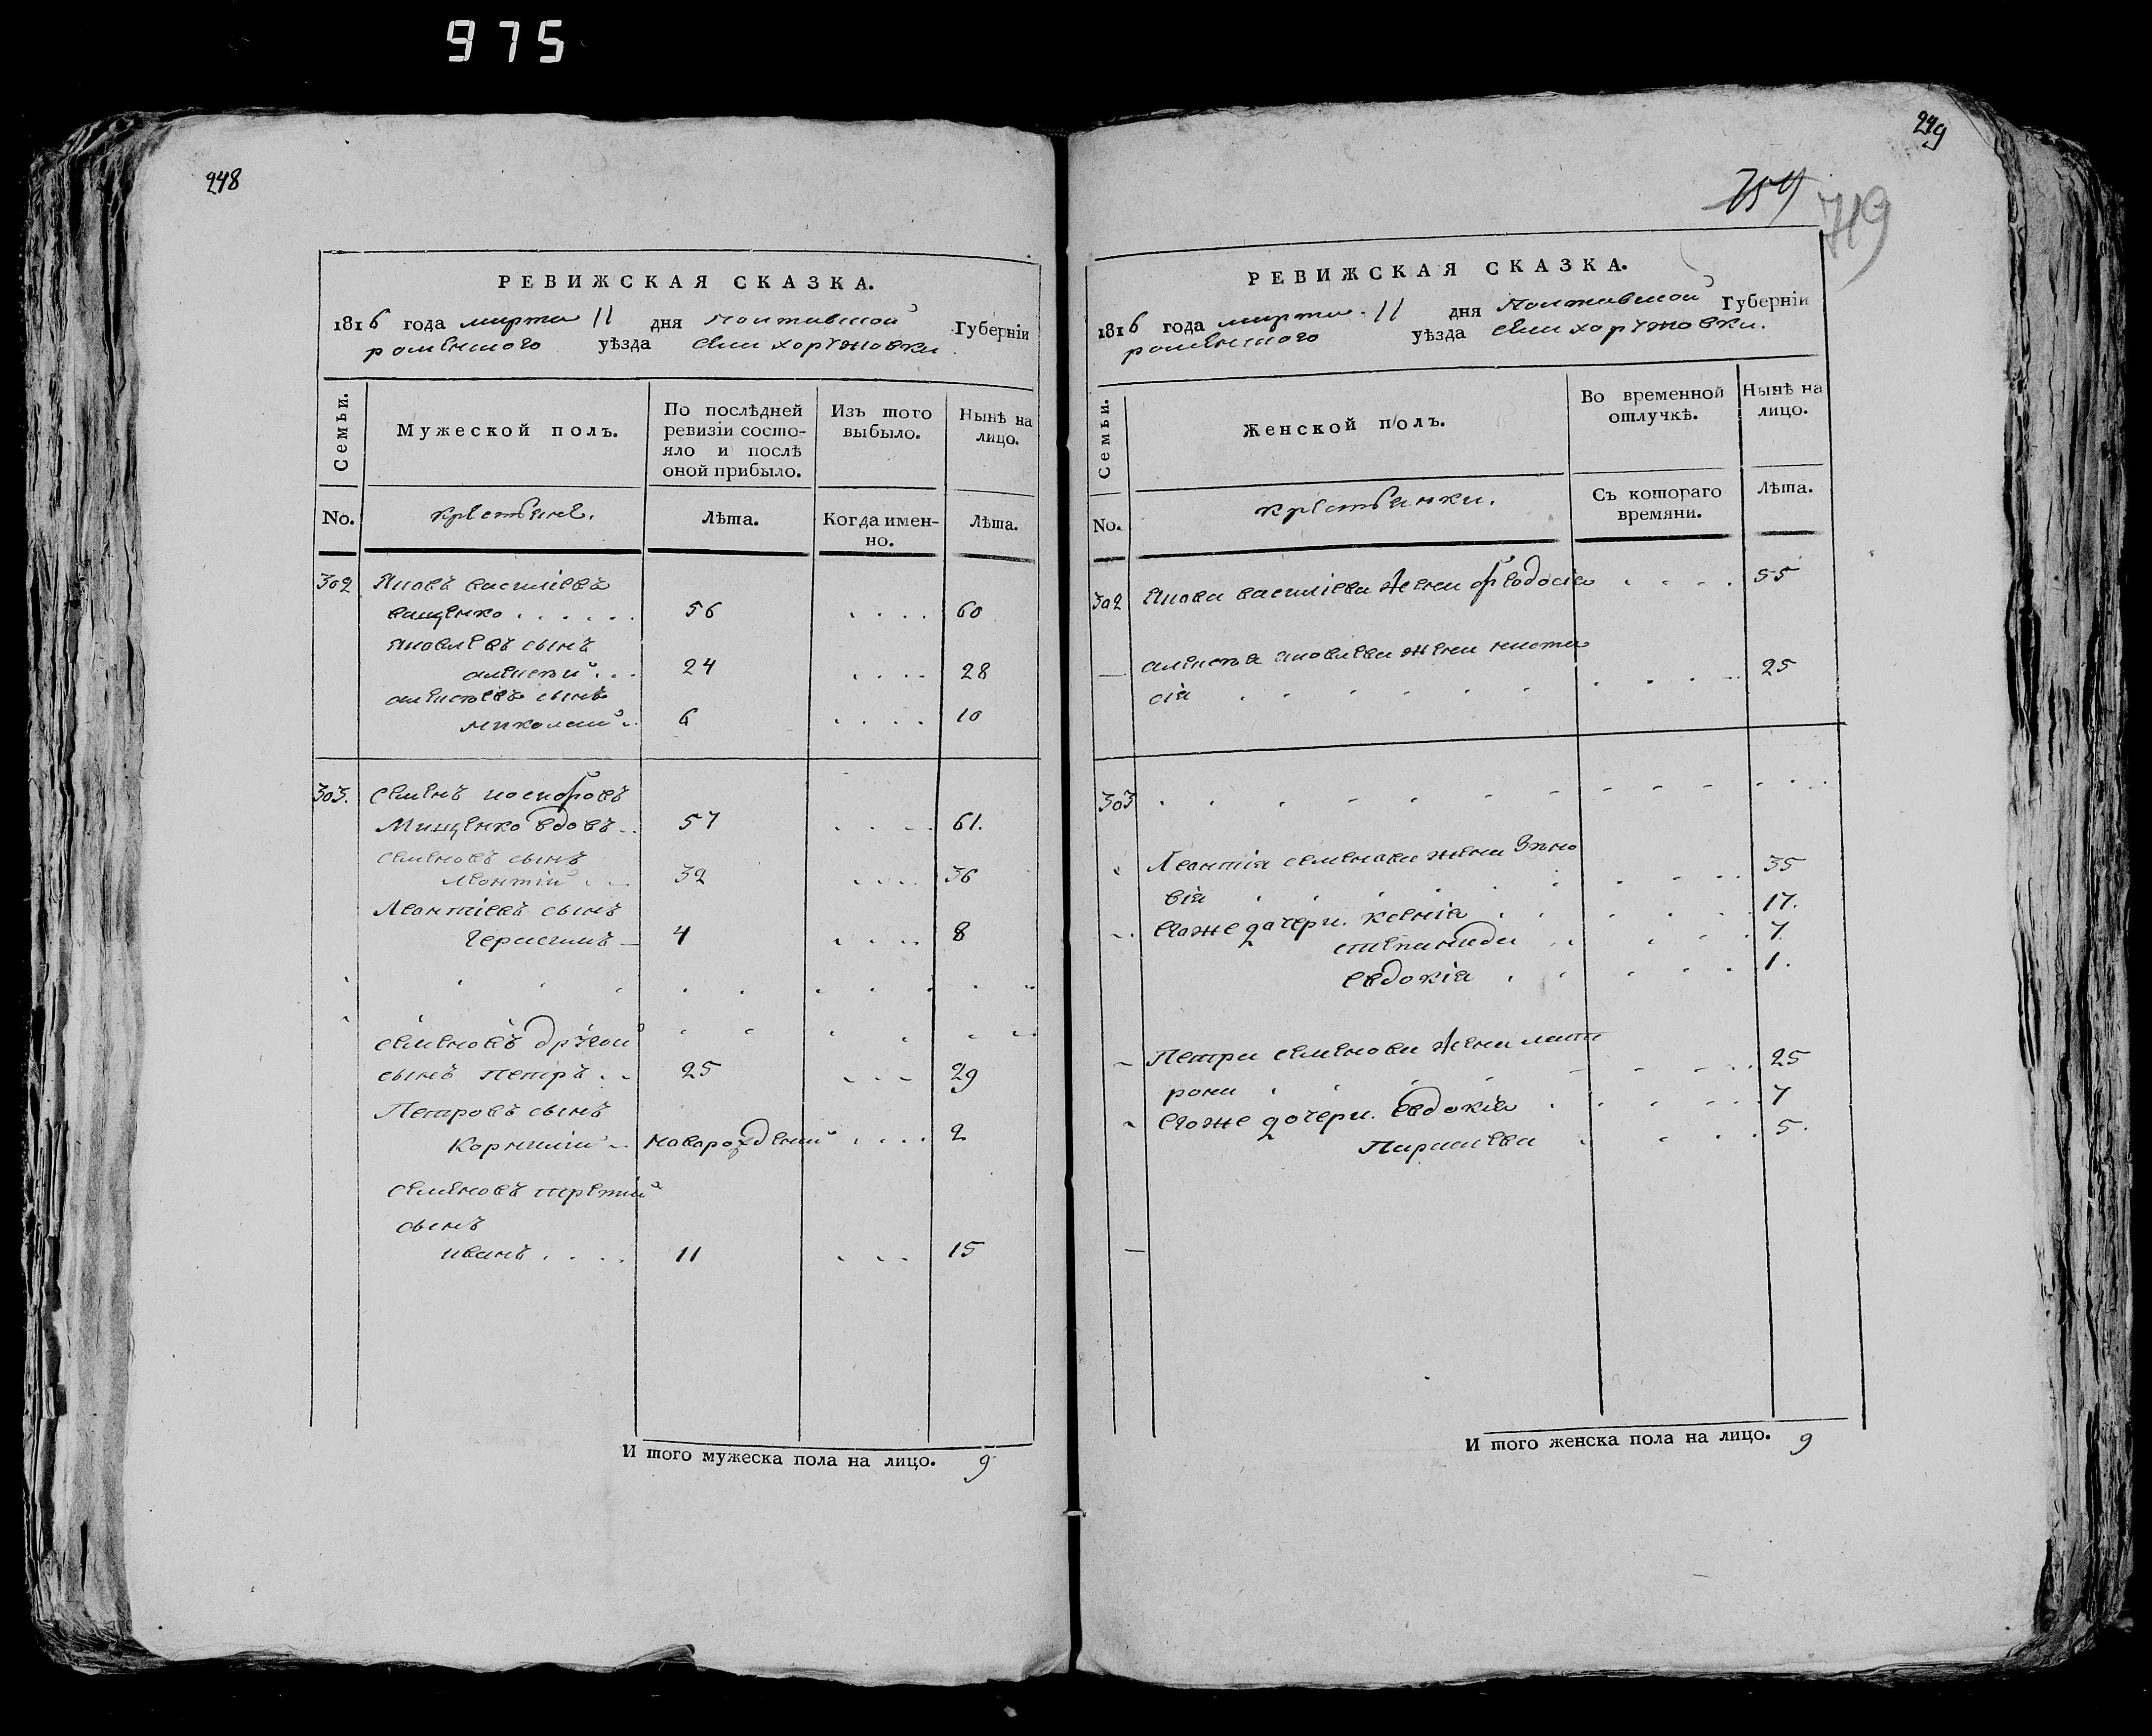 975
248
РЕВИЖСКАЯ СКАЗКА.
1816 года марта 11 дня Полтавской Губерніи
роменского уѣзда села хоружовки
Семьи.
Мужеской полъ.
По послѣдней ревизіи состо-
яло и послѣ
оной прибыло.
Изъ того
выбыло.
Нынѣ на
лицо.
No.
крестьяне.
Лѣта.
Когда имен-
но.
Лѣта.
302 Яковъ василіевъ
ващенко . . . . . . 56 . . . . 60
яковлевъ сынъ
алексѣй . . . 24 . . . . 28
алексѣевъ сынъ
николай . . 6 . . . . 10
303. семенъ
Мищенко вдовъ . . 57 . . . . 61.
семеновъ сынъ
леонтій . . 32 . . . . 36
Леонтіевъ сынъ
Герасимъ 4 . . . . 8
семеновъ другой
сынъ петръ . . 25 . . . 29
Петровъ сынъ
Корнилій . . новорожденій . . . . 2
семеновъ третій
сынъ
иванъ . . . . 11 . . . 15
И того мужеска пола на лицо. 9
249
759
719
РЕВИЖСКАЯ СКАЗКА.
1816 года марта 11 дня Полтавской Губерніи
роменского уѣзда села хоружовки.
Семьи.
Женской полъ.
Во временной
отлучкѣ.
Нынѣ на
лицо.
No.
крестьянки.
Съ котораго
времяни.
Лѣта.
302 Якова василіева жена феодосія . . . . 55
алексѣя яковлева жена наста
сія . . . . . . . . . . 25
303 . . . . . . . . . . . .
Леонтія семенова жена Зѣно
вія . . . . . . . . . 35
егоже дочери. ксенія . . . . . 17.
степанида . . . . . 7.
евдокія . . . . . 1.
Петра семенова жена матт
рона . . . . . . . . 25
егоже дочери. Евдокія . . . . . 7
Параскева . . . . 5.
И того женска пола на лицо. 9